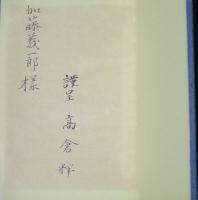 加藤義一郎様
謹呈 高倉